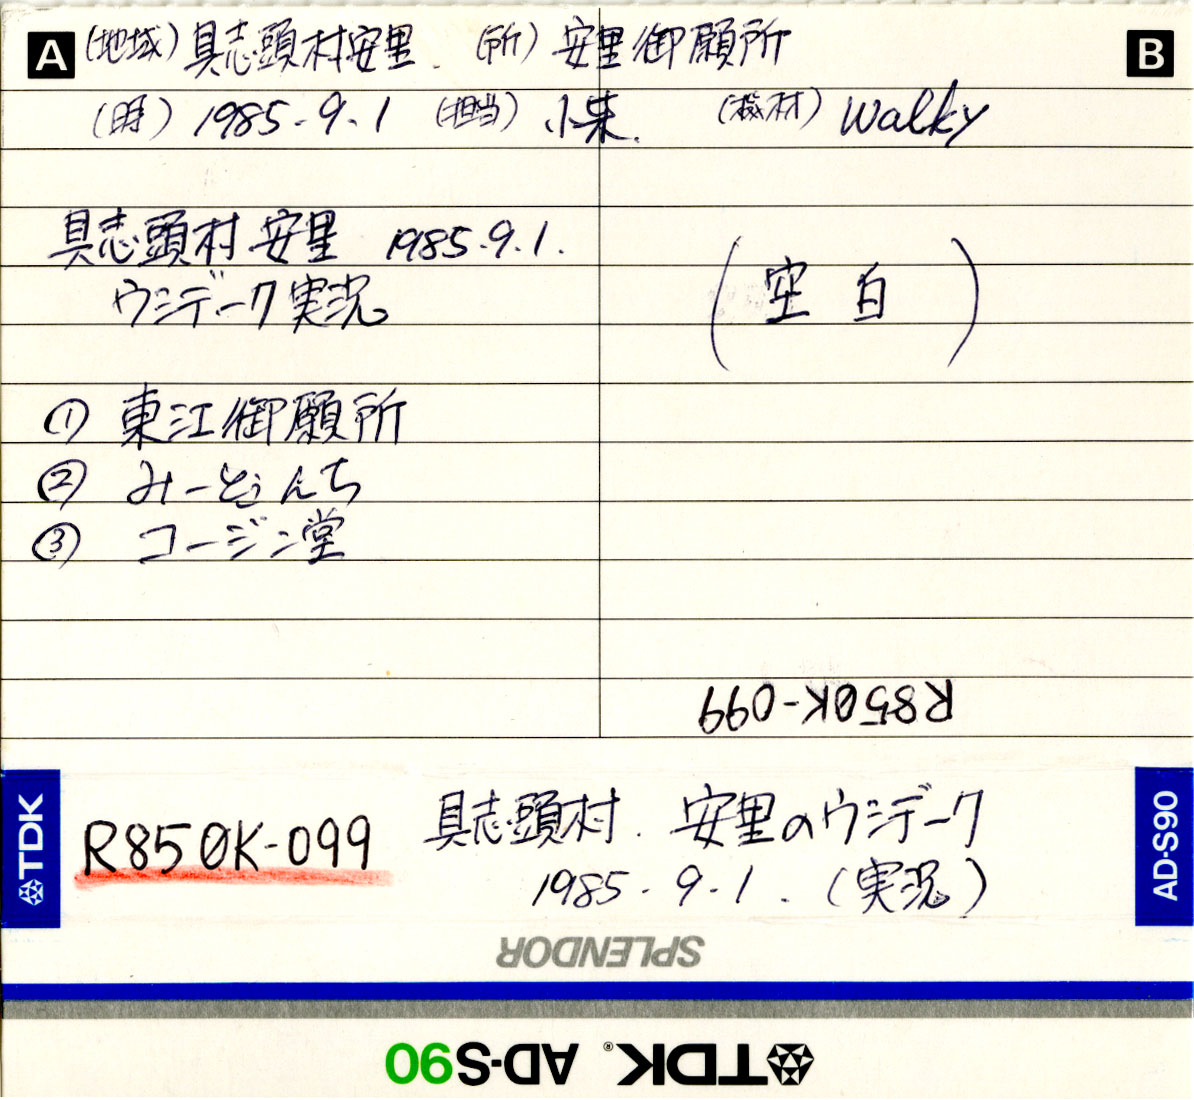 A (地域) 具志頭村安里. (所) 安里御願所 B
(時) 1985.9.1 (担当) 小柴. (機材) Walky
具志頭村 安里 1985.9.1.
ウシデーク実況
(空白)
① 東江御願所
② みーとぅんち
③ コージン堂
R850K-099
TDK
R850K-099
具志頭村. 安里のウシデーク
1985.9.1. (実況)
AD-S90
SPLENDOR
TDK® AD-S90